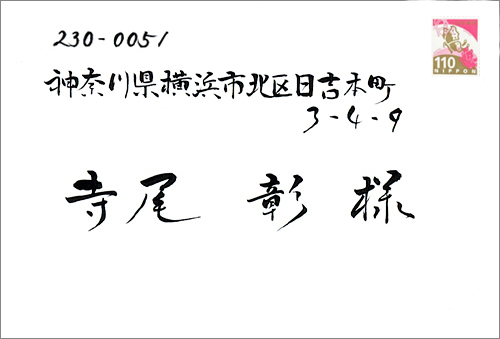 230-0051
110
NIPPON
神奈川県横浜市北区日吉本町
3-4-9
寺尾 彰 様